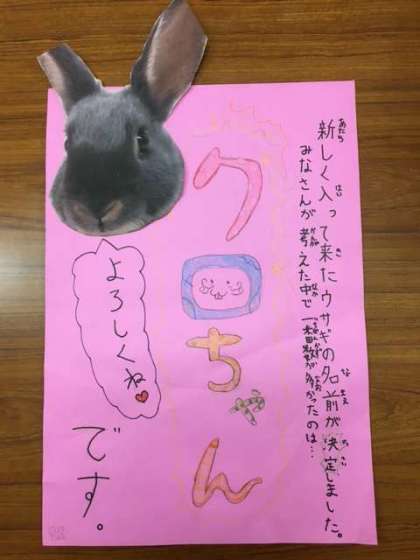 新しく入って来たウサギの名前が決定しました。
みなさんが考えた中で一番数が多かったのは…
クロちゃん
です。
よろしくね